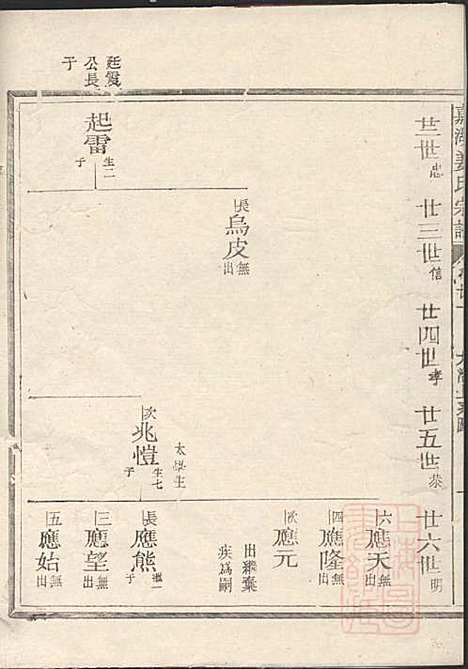 嘉湖姜氏宗譜
廿二世忠 廿三世信 廿四世孝 廿五世恭 廿六世明
廷霞公長子
起雷生二子
長烏皮無出
次兆愷生七子
太學生
六應天無出
四應隆無出
次應元
出繼棄疾為嗣
長應熊繼一子
三應望無出
五應始無出